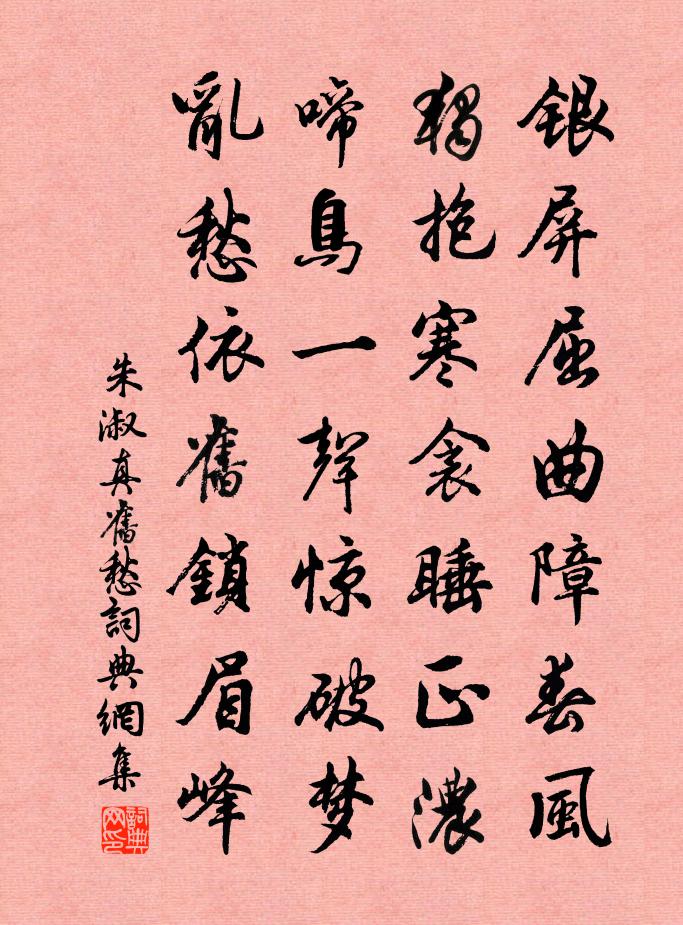 銀屏屈曲障春風
獨抱寒衾睡正濃
啼鳥一聲惊破梦
亂愁依舊鎖眉峰
朱淑真舊愁詞典網集
詞典网印